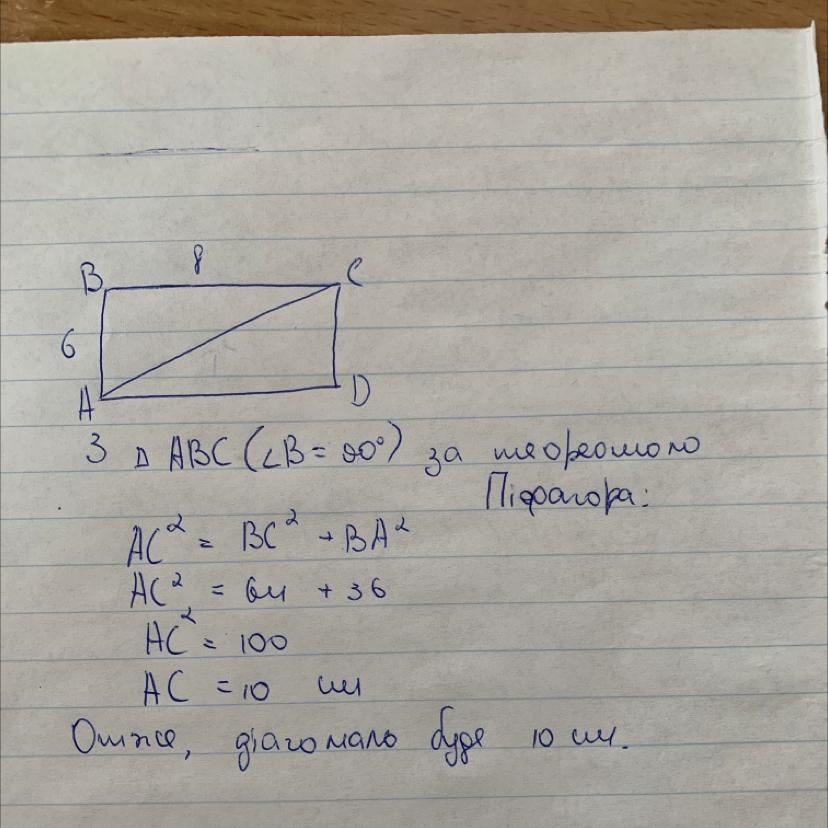 8
B C
6
A D
З △ ABC (∠B = 90°) за теоремою
Піфагора:
AC² = BC² + BA²
AC² = 64 + 36
AC² = 100
AC = 10 см
Отже, діагональ буде 10 см.